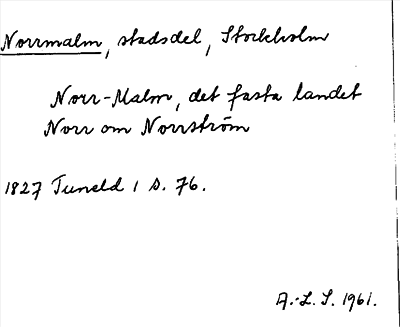 Norrmalm, stadsdel, Stockholm
Norr-Malm, det fasta landet
Norr om Norrström
1827 Tuneld 1 s. 76.
A.-L. S. 1961.